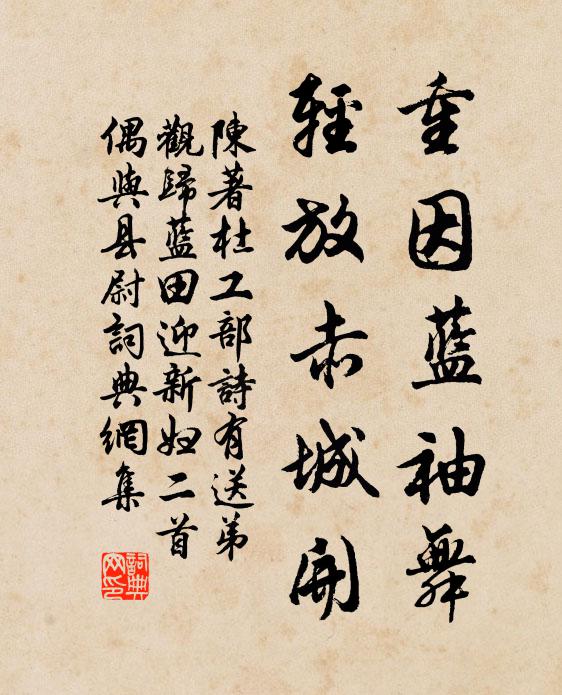 重因藍袖舞
輕放赤城開
陳著杜工部詩有送弟
觀歸藍田迎新婦二首
偶與县尉詞典網集
詞典網印